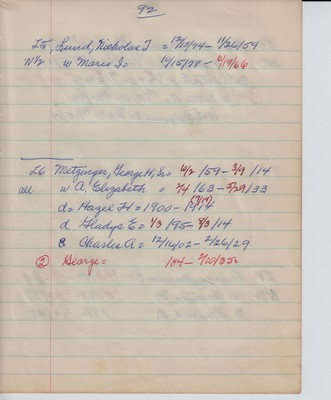 92
L5, Lund, Nicholas T = 12/13/74 - 11/26/59
N½ w Marie Is 10/15/78 - 9/19/66
L6 Metzinger, George H, Sr = 10/2/59 - 3/9/14
all w A. Elizabeth = 2/4/63 - 5/29/33
d = Hazel H = 1900 - 1914 (3/14)
d Gladys E = 1/3/95 - 8/3/14
& Charles A = 12/16/02 - 2/26/29
② George = 184 - 2/10/35